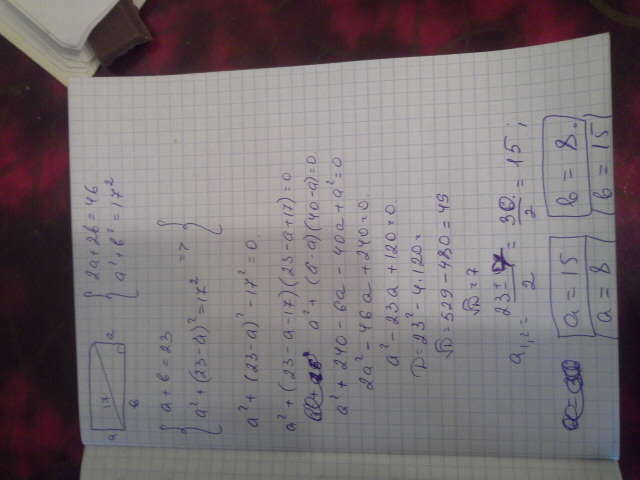 a 17 a
в
{ 2a + 2в = 46
{ a² + в² = 17²
{ a + в = 23
{ a² + (23-a)² = 17² => { }
a² + (23-a)² - 17² = 0.
a² + (23-a-17)(23-a+17) = 0
a² + (6-a)(40-a) = 0.
a² + 240 - 6a - 40a + a² = 0
2a² - 46a + 240 = 0.
a² - 23a + 120 = 0.
D = 23² - 4·120 =
√D = 529 - 480 = 49
√D = 7
a₁,₂ = (23 ± 7)/2 = 30/2 = 15;
a = 15 в = 8.
a = 8 в = 15